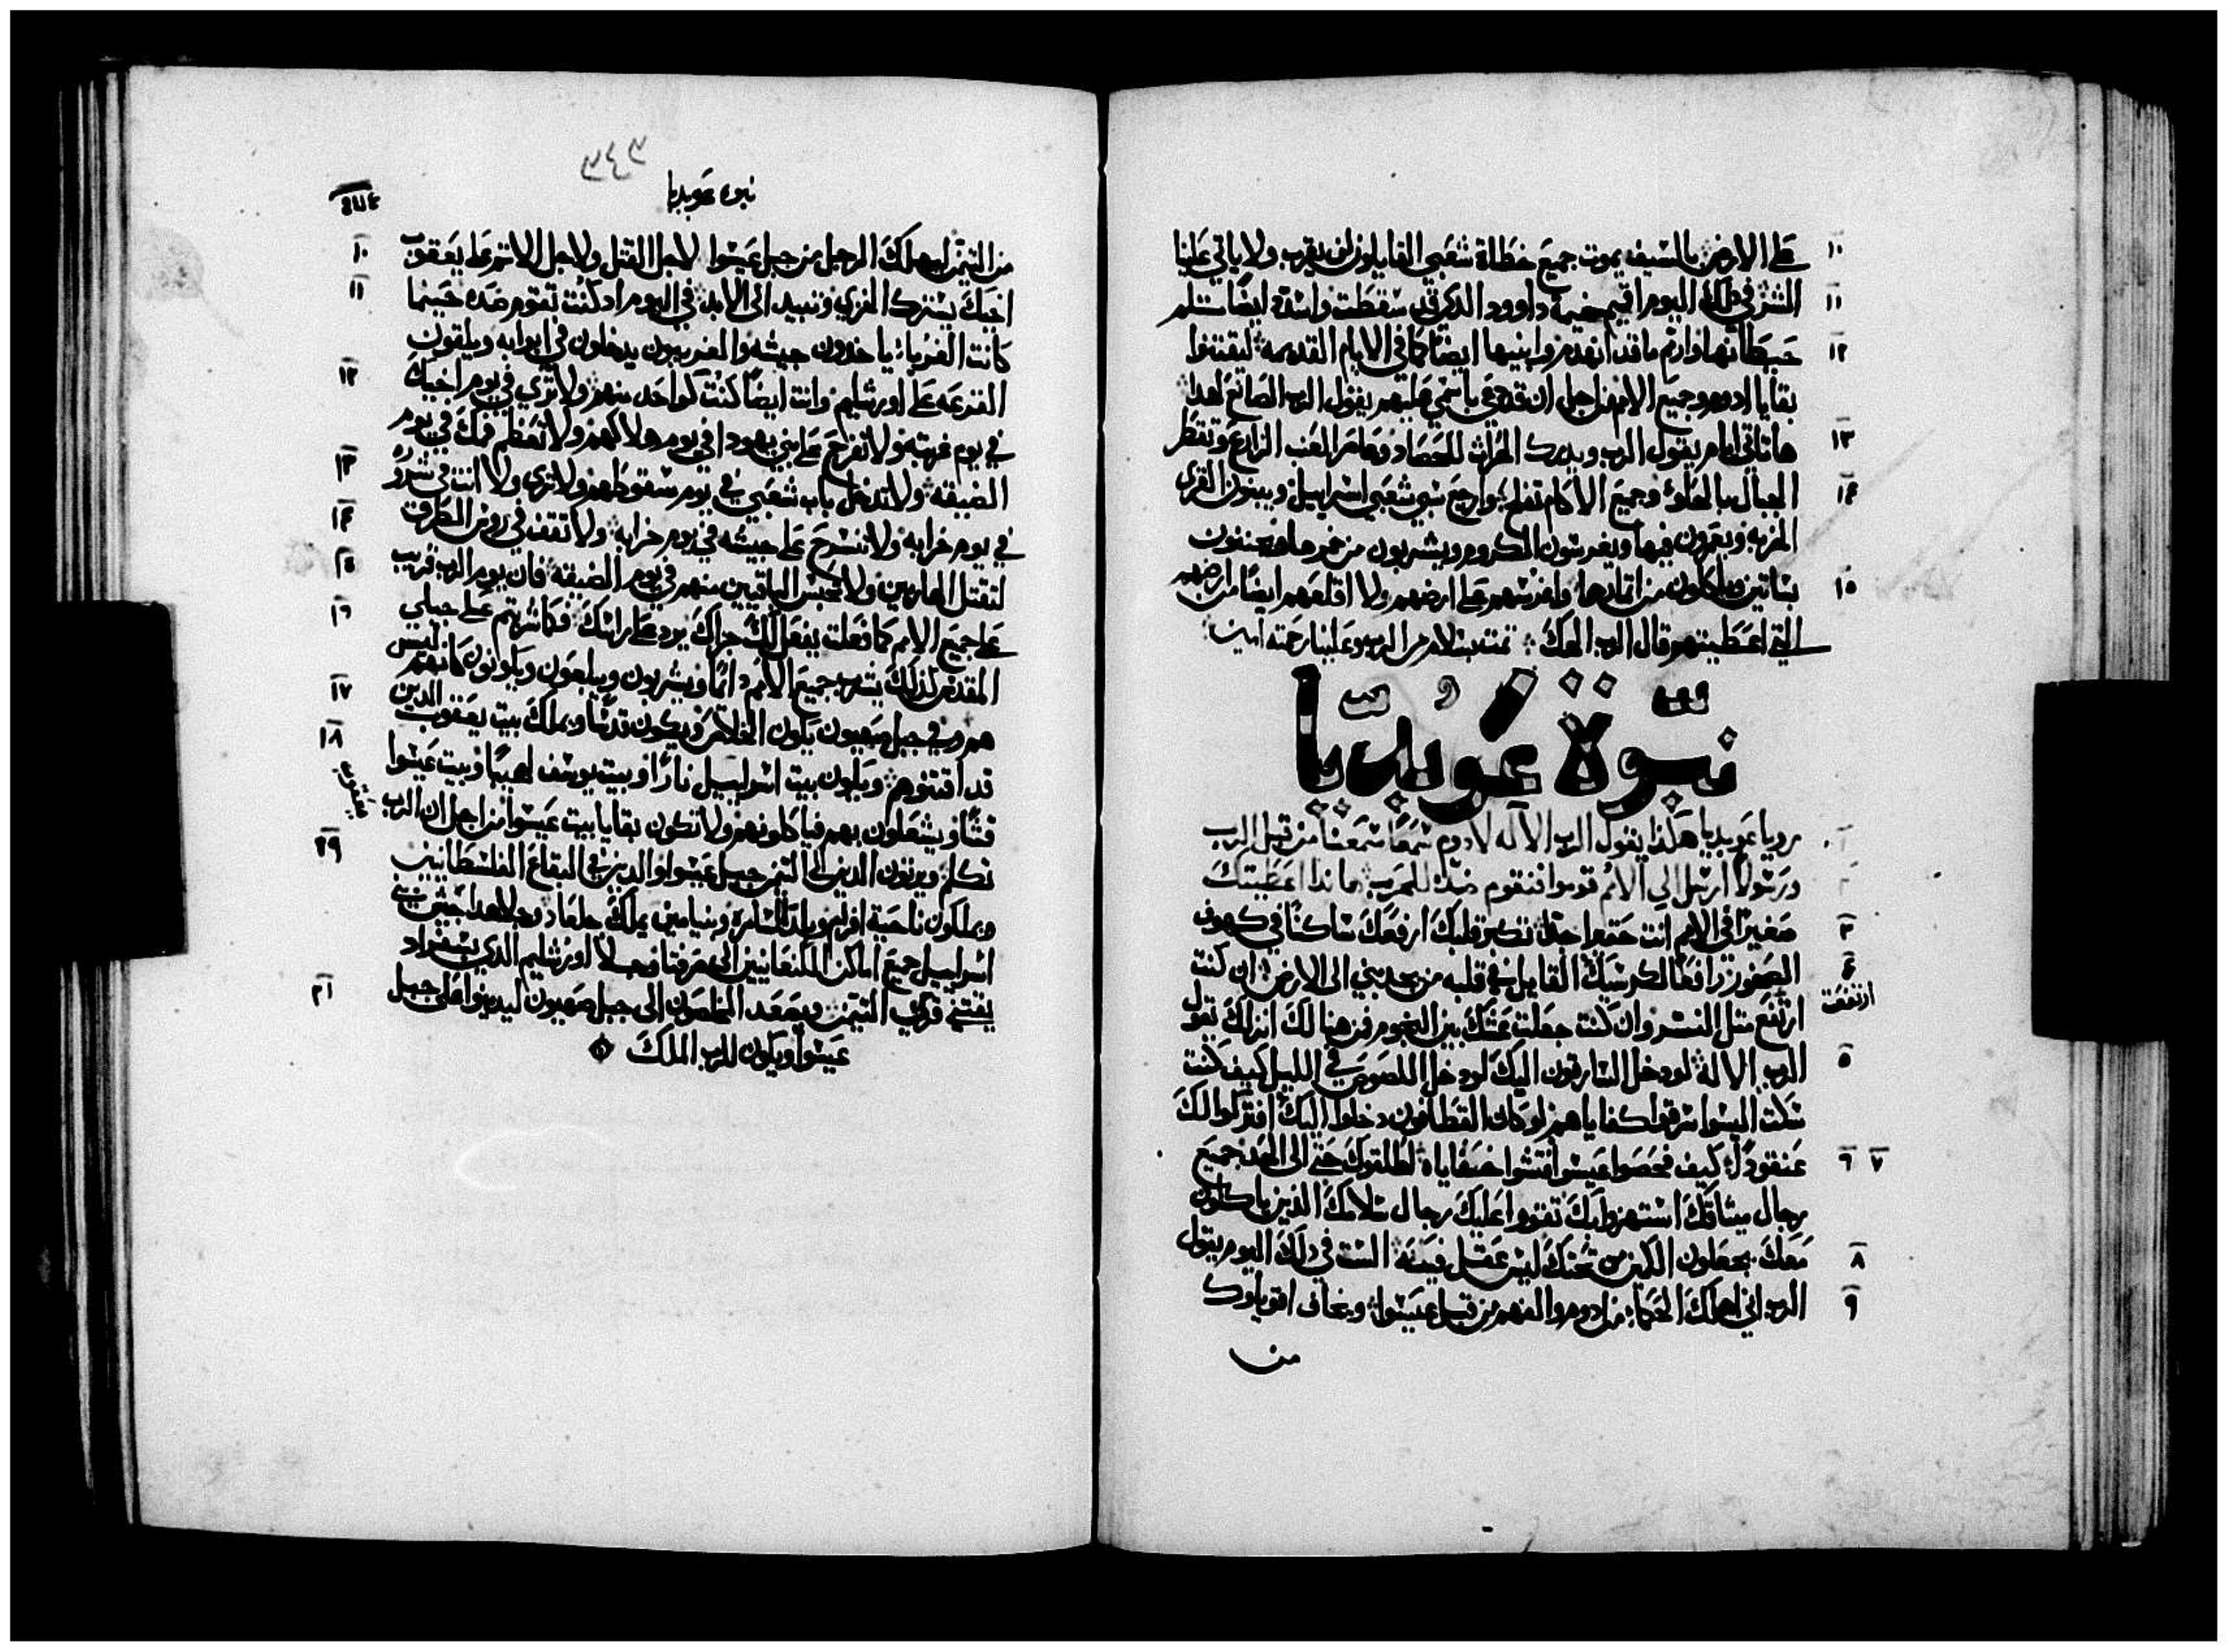 ١٠ على الارض بالسيف يموت جميع خطاة شعبي القايلون لن يقرب ولا ياتي علينا
١١ الشر في ذلك اليوم اقيم خيمة داوود الذي قد سقطت واشده ايضا تثلم
١٢ حيطانها وارم ما قد انهدم وابنيها ايضا كما في الايام القديمه ليقتنوا
بقايا ادوم وجميع الامم من اجل ان قد دعي باسمي عليهم يقول الرب الصانع لهدا
١٣ ها تاتي ايام يقول الرب ويدرك الحراث للحصاد وعاصر العنب الزارع وتقطر
١٤ الجبال بالحلاوة وجميع الاكام تفلح وارجع سبي شعبي اسراييل ويبنون القرى
الخربه ويعمرون فيها ويغرسون الكروم ويشربون من خمرها ويجننون
١٥ بساتين وياكلون من اثمارها واغرسهم على ارضهم ولا اقلعهم ايضا من ارضهم
التي اعطيتهم قال الرب الهك تمت بسلام من الرب وعلينا رحمته امين
نبوة عوبديا
١ رويا عوبديا هكذا يقول الرب الاله لادوم سمعا سمعنا من قبل الرب
٢ ورسولا ارسل الي الامم قوموا فنقوم ضدك للحرب ها ندا اعطيتك
٣ صغيرا في الامم انت حقير جدا تكبر قلبك ارفعك ساكنا في كهوف
٤ الصخور رافعا لكرسيك القايل في قلبه من يحدرني الى الارض ان كنت
ارتفعت
ارتفع مثل النسر وان كنت جعلت عشك بين النجوم فمن هنالك انزلك يقول
٥ الرب الاله لو دخل السارقون اليك لو دخل اللصوص في الليل كيف كنت
سكت اليسوا سرقوا كفاياهم لو كان القطافون دخلوا اليك افتركوا لك
٦ ٧ عنقودا كيف فحصوا عيسوا فتشوا خفاياه اطلقوك حتى الى الحد جميع
رجال ميثاقك استهزوا بك تقووا عليك رجال سلامك الذين ياكلون
٨ معك يجعلون الكمين من تحتك ليس عقل فيه الست في ذلك اليوم يقول
٩ الرب اني اهلك الحكماء من ادوم والفهم من قبل عيسوا ويخاف اقوياوك
من
٣٤٣
نبوة عوبديا
١٠ من التيمن ليهلك الرجل من جبل عيسوا لاجل القتل ولاجل الاثم على يعقوب
١١ اخيك يستراك الخزي وتبيد الى الابد في اليوم اذ كنت تقوم ضده حينما
كانت الغرباء ياخدون جيشه والغريبون يدخلون في ابوابه ويلقون
١٢ القرعه على اورشليم وانت ايضا كنت كواحد منهم ولا تري في يوم اخيك
في يوم غربته ولا تفرح على بني يهودا في يوم هلاكهم ولا تعظم فمك في يوم
١٣ الضيقه ولا تدخل باب شعبي في يوم سقوطهم ولا تري ولا انت في شروره
١٤ في يوم خرابه ولا تنسرح على جيشه في يوم خرابه ولا تقف في روس الطرق
١٥ لتقتل الهاربين ولا تحبس الباقيين منهم في يوم الضيقه فان يوم الرب قريب
١٦ على جميع الامم كما فعلت يفعل لك جزاك يرد على راسك فكما شربتم على جبلي
المقدس لذلك يشرب جميع الامم دائما ويشربون ويبلعون ويكونون كانهم ليس
١٧ هم وفي جبل صهيون يكون الخلاص ويكون قدسا ويملك بيت يعقوب الدين
١٨ قد اقتنوهم ويكون بيت اسراييل نارا وبيت يوسف لهيبا وبيت عيسوا
قشا ويشعلون بهم فياكلونهم ولا تكون بقايا بيت عيسوا من اجل ان الرب
١٩ تكلم ويرثون الدين الى التيمن جبل عيسوا والدين في البقاع الفلسطانيين
ويملكون ناحية افرام وبلد السامره وبنيامين يملك جلعاد وجلا هدا جيش بني
اسراييل جميع اماكن الكنعانيين الى صرفتا وجلا اورشليم الذي بسفراد
٢١ يقتني قرى التيمن ويصعد المخلصون الى جبل صهيون ليدينوا على جبل
عيسوا ويكون للرب الملك